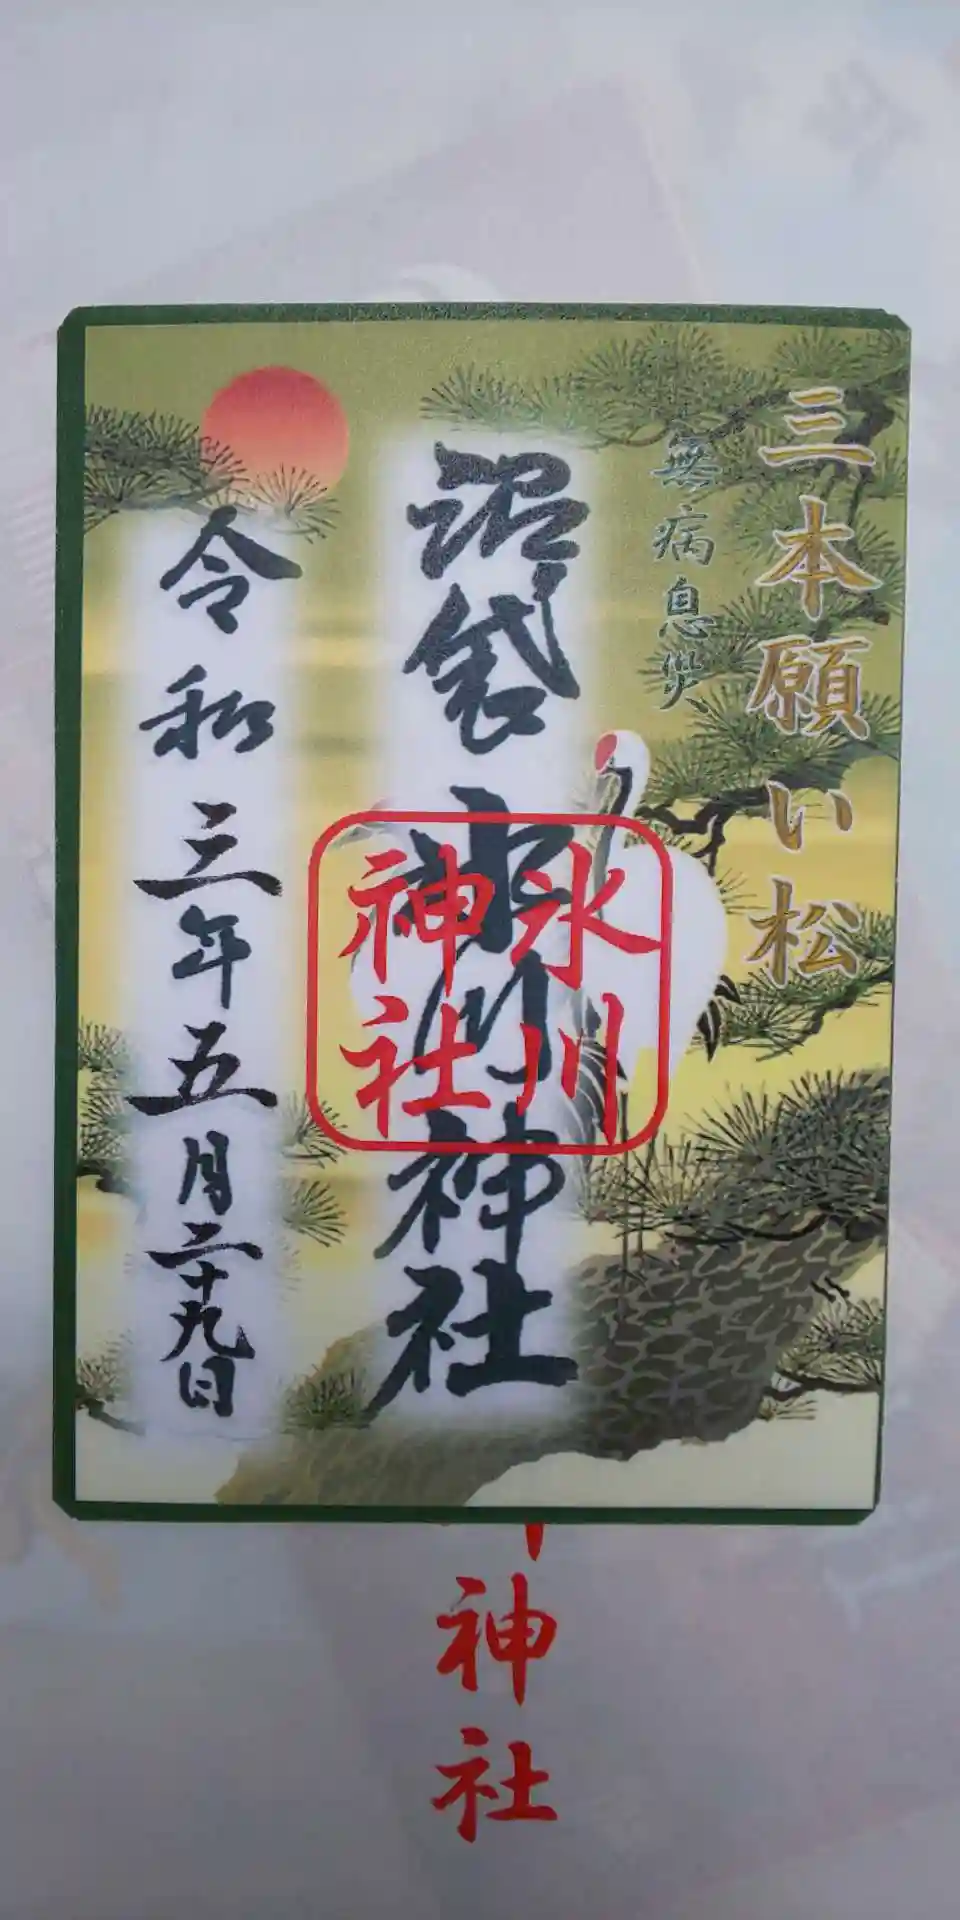 三本願い松
無病息災
沼袋氷川神社
氷川
神社
令和三年五月二十九日
神社